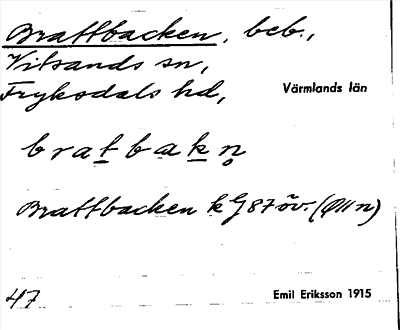 Brattbacken, beb.,
Vitsands sn,
Fryksdals hd,
Värmlands län
bratbakn
Brattbacken kG 87 öv. (Ö11n)
47
Emil Eriksson 1915